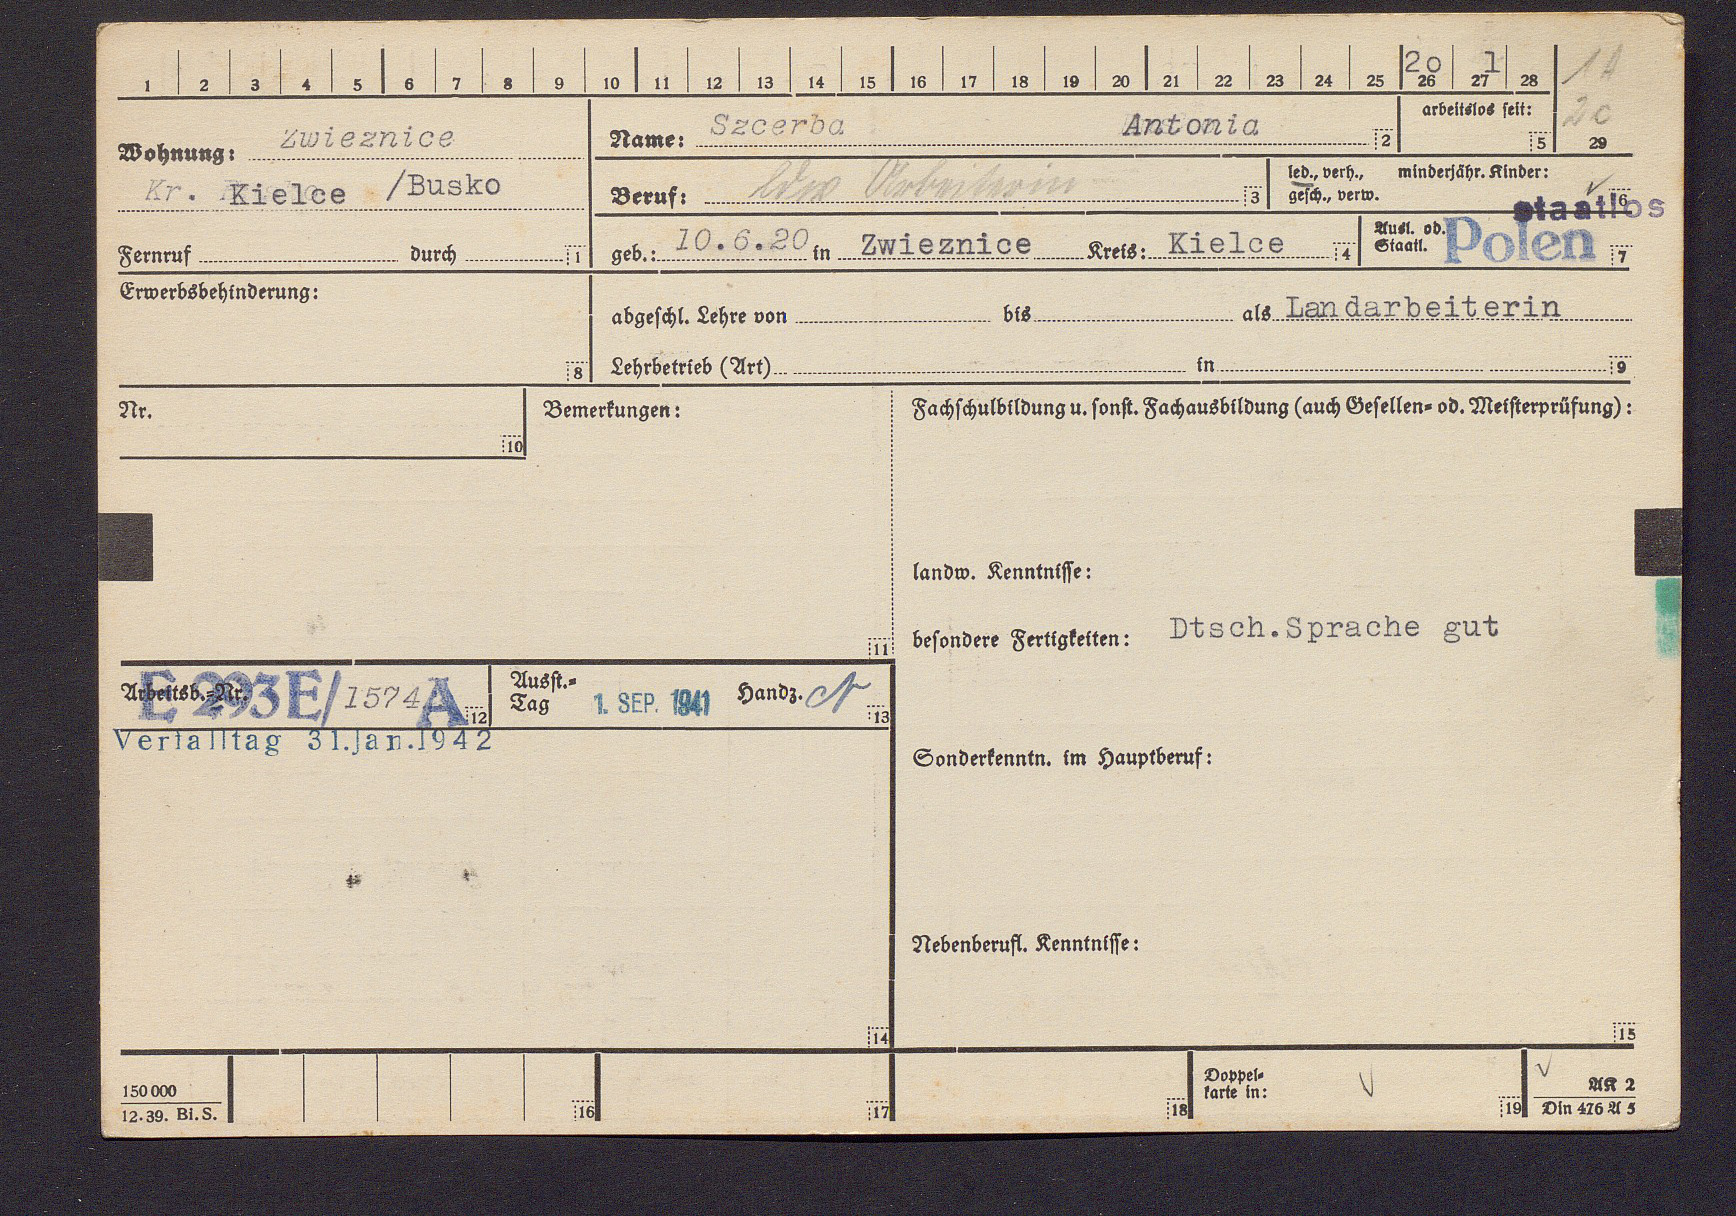 1 2 3 4 5 6 7 8 9 10 11 12 13 14 15 16 17 18 19 20 21 22 23 24 25 26 27 28
20 1
1A
2c
29
Wohnung: Zwieznice
Kr. Kielce /Busko
Fernruf durch 1
Name: Szcerba Antonia 2
arbeitslos seit: 5
Beruf: ldw Arbeiterin 3
led., verh., minderjähr. Kinder:
gesch., verw. 6
staatlos
geb.: 10.6.20 in Zwieznice Kreis: Kielce 4
Ausl. od.
Staatl. Polen 7
Erwerbsbehinderung:
8
abgeschl. Lehre von bis als Landarbeiterin
Lehrbetrieb (Art) in 9
Nr.
10
Bemerkungen:
11
Fachschulbildung u. sonst. Fachausbildung (auch Gesellen- od. Meisterprüfung):
landw. Kenntnisse:
besondere Fertigkeiten: Dtsch.Sprache gut
Arbeitsb.-Nr. E 293E/1574A 12
Ausst.-
Tag 1. SEP. 1941 Handz. 13
Verfalltag 31.Jan.1942
Sonderkenntn. im Hauptberuf:
Nebenberufl. Kenntnisse:
14
15
150 000
12. 39. Bi. S.
16
17
18
Doppel-
karte in:
19
AK 2
Din 476 A 5